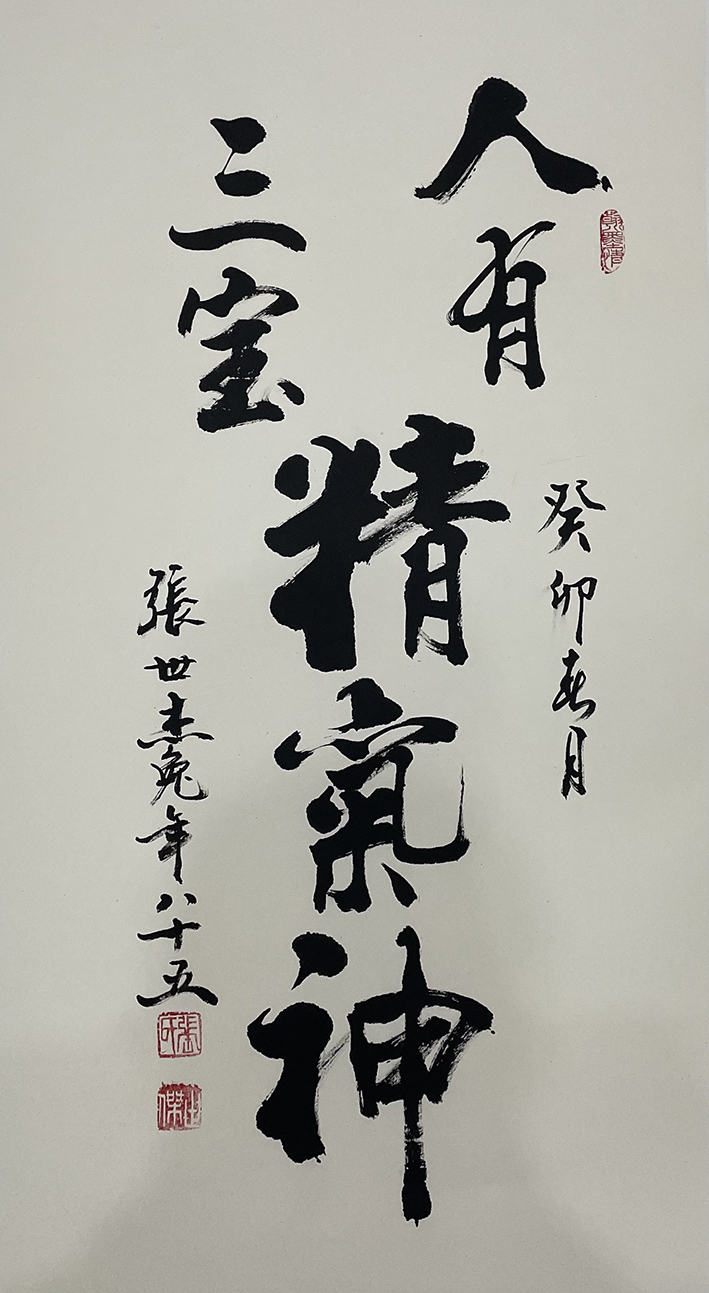 人有
三宝
精氣神
癸卯春月
張世杰兔年八十五